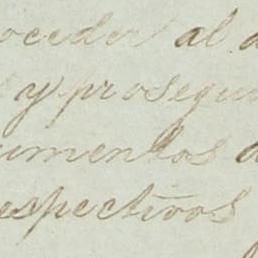 oceder al d
y prosegui
umentos d
espectivos